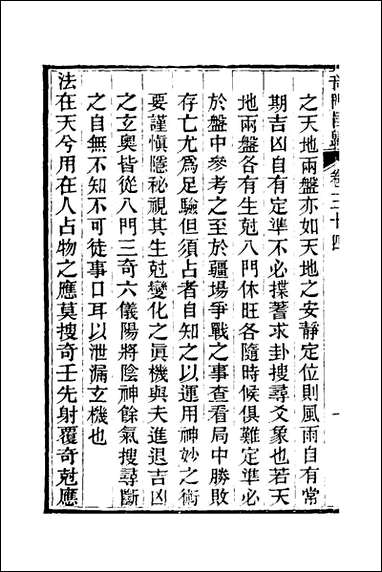 奇門旨歸
卷三十四
一
之天地兩盤亦如天地之安靜定位則風雨自有常
期吉凶自有定準不必揲蓍求卦搜尋爻象也若天
地兩盤各有生尅八門休旺各隨時候俱難定準必
於盤中參考之至於疆場爭戰之事查看局中勝敗
存亡尤爲足驗但須占者自知之以運用神妙之術
要謹愼隱祕視其生尅變化之眞機與夫進退吉凶
之玄奧皆從八門三奇六儀陽將陰神餘氣搜尋斷
之自無不知不可徒事口耳以泄漏玄機也
法在天兮用在人占物之應莫搜奇壬先射覆奇尅應